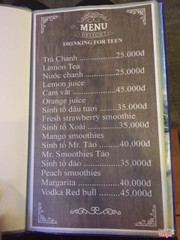 MENU
DELIGHT
DRINKING FOR TEEN
Trà Chanh ............25.000đ
Lemon Tea
Nước chanh ............25.000đ
Lemon juice
Cam vắt ............45.000đ
Orange juice
Sinh tố dâu tươi ......35.000đ
Fresh strawberry smoothie
Sinh tố Xoài ............35.000đ
Mango smoothies
Sinh tố Mr. Táo ......40.000đ
Mr. Smoothies Táo
Sinh tố đào ............35.000đ
Peach smoothies
Margarita ............40.000đ
Vodka Red bull ......45.000đ